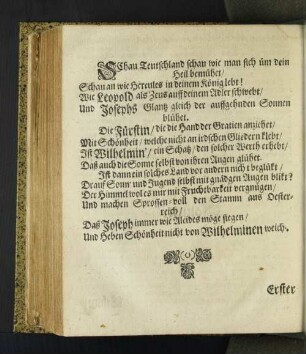 SChau Teutschland schau wie man sich üm dein
Heil bemühet /
Schau an wie Hercules in deinem König lebt!
Wie Leopold als Zeus auff deinem Adler schwebt /
Und Josephs Glantz gleich der auffgehnden Sonnen
blühet.
Die Fürstin / die die Hand der Gratien anziehet /
Mit Schönheit / welche nicht an irdschen Gliedern klebt /
Ist Wilhelmin' / ein Schatz / den solcher Werth erhebt /
Daß auch die Sonne selbst von ihren Augen glühet.
Ist dann ein solches Land vor andern nicht beglükt /
Drauf Sonn und Jugend selbst mit gnädgen Augen blikt?
Der Himmel woll es nur mit Fruchtbarkeit vergnügen /
Und machen Sprossen-voll den Stamm aus Oester-
reich /
Das Joseph immer wie Alcides möge siegen /
Und Heben Schönheit nicht von Wilhelminen weich.
Erster